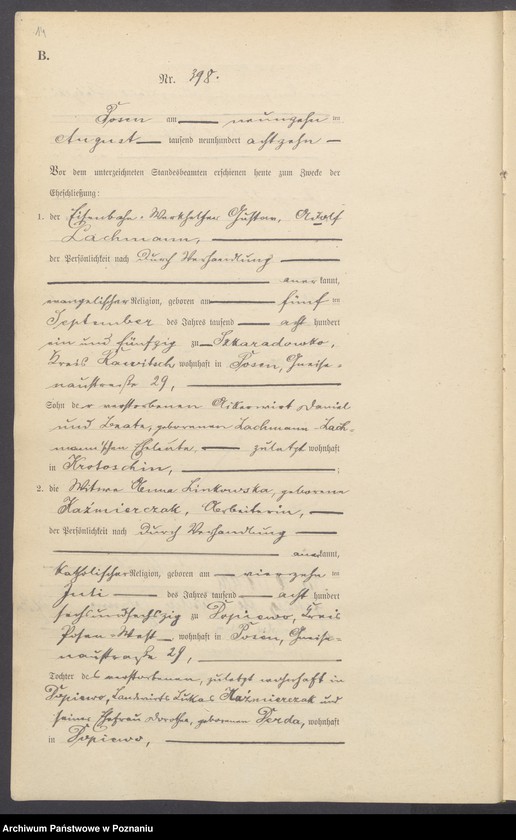 14
B.
Nr. 398.
Posen am neunzehn ten
August tausend neunhundert achtzehn
Vor dem unterzeichneten Standesbeamten erschienen heute zum Zwecke der
Eheschließung:
1. der Eisenbahn-Werkhelfer Gustav, Adolf
Lachmann,
der Persönlichkeit nach durch Verhandlung
anerkannt,
evangelischer Religion, geboren am fünf ten
September des Jahres tausend acht hundert
ein und fünfzig zu Szkaradowko,
Kreis Rawitsch wohnhaft in Posen, Gneise-
naustraße 29,
Sohn der verstorbenen Ackerwirt Daniel
und Beate, geborenen Lachmann-Lach-
mann'schen Eheleute, zuletzt wohnhaft
in Krotoschin, ;
2. die Witwe Anna Linkowska, geborene
Kaźmierczak, Arbeiterin,
der Persönlichkeit nach durch Verhandlung
anerkannt,
katholischer Religion, geboren am vierzehn ten
Juli des Jahres tausend acht hundert
sechsundsechszig zu Dopiewo, Kreis
Posen-West wohnhaft in Posen, Gneise-
naustraße 29,
Tochter des verstorbenen, zuletzt wohnhaft in
Dopiewo, Landwirts Lukas Kaźmierczak und
seiner Ehefrau Dorothea, geborenen Perda, wohnhaft
in Dopiewo,
Archiwum Państwowe w Poznaniu